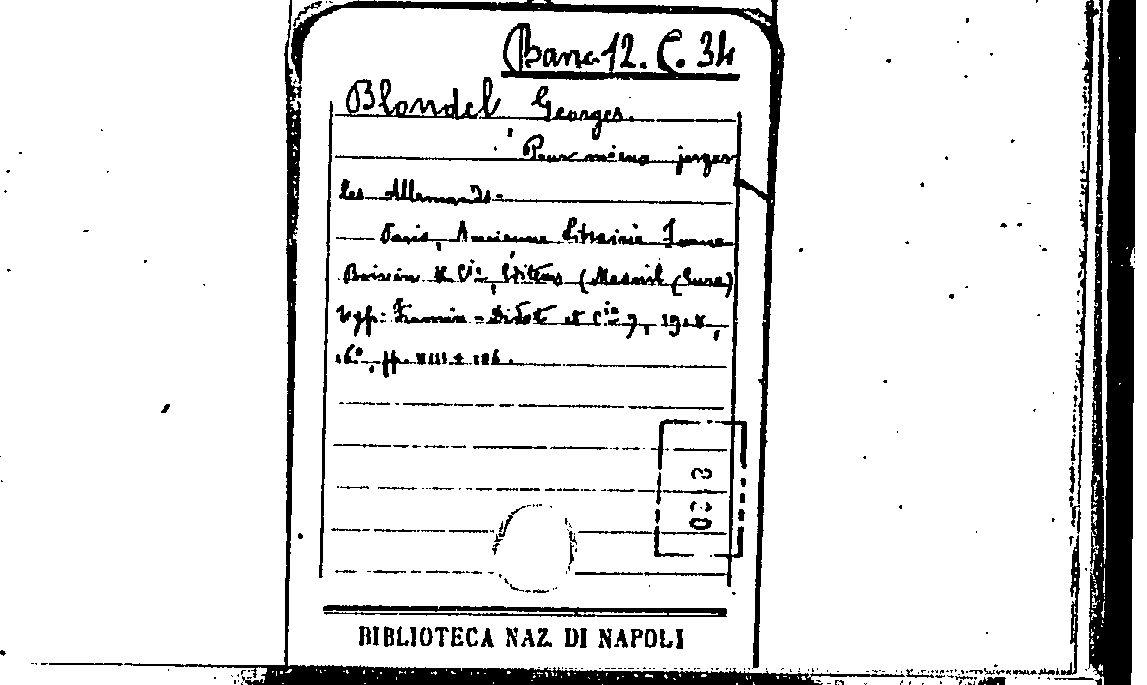 Banc 12. C. 34
Blondel Georges.
Pour mieux juger
les Allemands.
Paris, Ancienne Librairie Furne
Boivin & Cie, Éditeurs (Mesnil (Eure)
typ: Firmin-Didot et Cie),
16°, pp. VIII +
BIBLIOTECA NAZ. DI NAPOLI